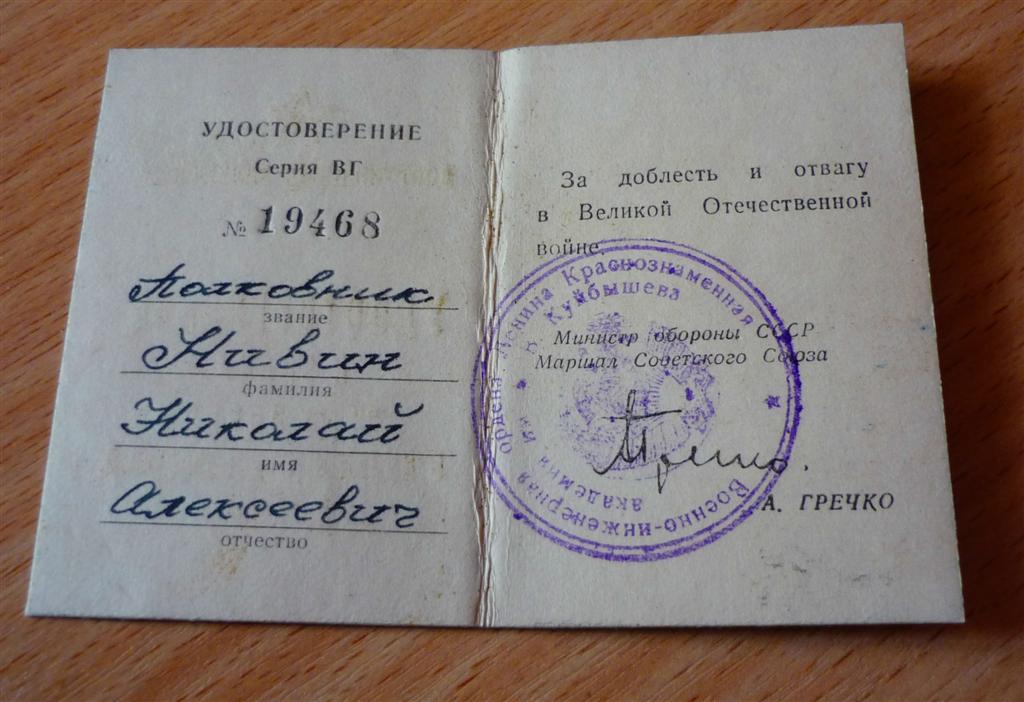 УДОСТОВЕРЕНИЕ
Серия ВГ
№ 19468
Полковник
звание
Нивин
фамилия
Николай
имя
Алексеевич
отчество
За доблесть и отвагу
в Великой Отечественной
войне
Министр обороны СССР
Маршал Советского Союза
А. ГРЕЧКО
Военно-инженерная ордена Ленина Краснознаменная
академия им. В. Куйбышева